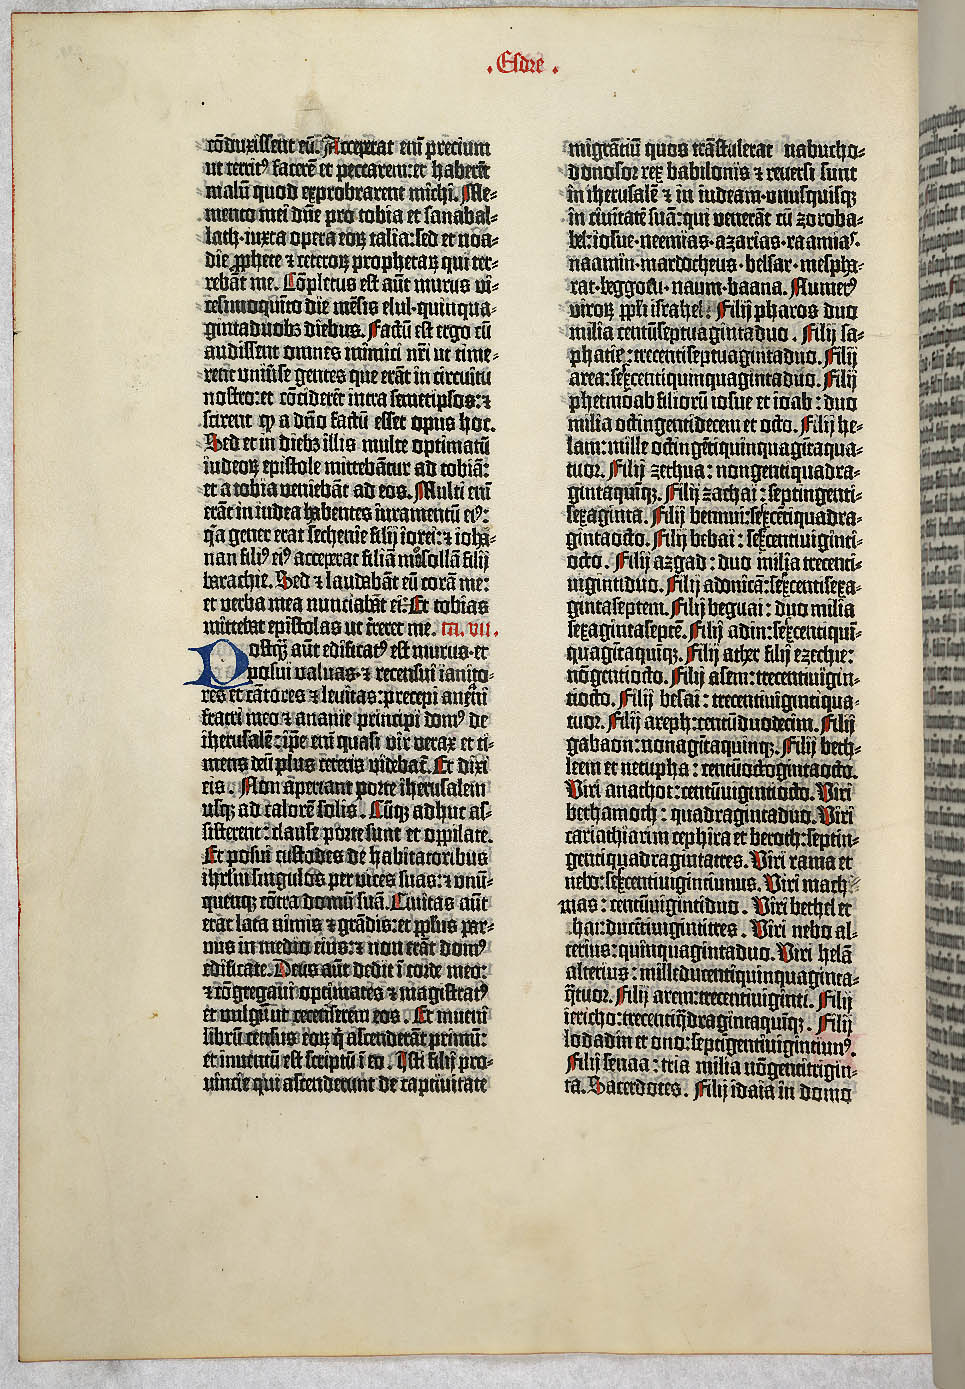 . Esdre .
cōduxissent eū. Acceperat em̄ precium
ut territ⁹ facerē et peccarem: et haberēt
malū quod exprobrarent michi. Me-
mento mei dn̄e pro tobia et sanabal-
lath · iuxta opera eoꝝ talia: sed et noa-
die ꝓphete ⁊ ceteroꝝ prophetaꝝ qui ter-
rebāt me. Cōpletus est aūt murus vi-
cesimoquīto die mēsis elul · quinqua-
gintaduobꝫ diebus. Factū est ergo cū
audissent omnes inimici nr̄i ut time-
rent universe gentes que erāt in circuitu
nostro: et cōciderēt intra semetipsos: ⁊
scirent ꝙ a dn̄o factū esset opus hoc.
Sed et in diebꝫ illis multe optimatū
iudeoꝝ epistole mittebātur ad tobiā:
et a tobia veniebāt ad eos. Multi em̄
erāt in iudea habentes iuramentū ei⁹:
q̄a gener erat sechenie filij iorei: ⁊ iohā-
nan fili⁹ ei⁹ acceperat filiā mosollā filij
barachie. Sed ⁊ laudabāt eū corā me:
et verba mea nunciabāt ei: Et tobias
mittebat epistolas ut t̄reret me. ca. vii.
Postqꝫ aūt edificat⁹ est murus · et
posui valvas · ⁊ recensui ianito-
res et cātores ⁊ levitas: precepi aneni
fratri meo ⁊ ananie principi dom⁹ de
iherusalē: ip̄e em̄ quasi vir verax et ti-
mens deū plus ceteris videbat̄. Et dixi
eis. Non aperiant porte iherusalem
usqꝫ ad calorē solis. Cūqꝫ adhuc as-
sisterent: clause porte sunt et oppilate.
Et posui custodes de habitatoribus
ihrl̄m singulos per vices suas: ⁊ unū-
quenqꝫ cōtra domū suā. Civitas aūt
erat lata nimis ⁊ grādis: et pp̄lus par-
vus in medio eius: ⁊ non erāt dom⁹
edificate. Deus aūt dedit ī corde meo:
⁊ cōgregavi optimates ⁊ magistrat⁹
et vulgus ut recenserem eos. Et inveni
librū census eoꝝ q̄ ascenderāt primū:
et inventū est scriptū ī eo. Isti filij pro-
vincie qui ascenderunt de captivitate
migrātiū quos trāstulerat nabucho-
donosor rex babilonis ⁊ reversi sunt
in iherusalē ⁊ in iudeam · unusquisqꝫ
in civitatē suā: qui venerāt cū zoroba-
bel: iosue · neemias · azarias · raamias ·
naamin · mardocheus · belsar · mespha-
rat · beggoai · naum · baana. Numer⁹
viroꝝ pp̄li israhel: Filij pharos duo
milia centūseptuagintaduo. Filij sa-
phatie: trecentiseptuagintaduo. Filij
area: sexcentiquinquagintaduo. Filij
phetmoab filiorū iosue et ioab: duo
milia octingentidecem et octo. Filij he-
lam: mille octingētiquinquagītaqua-
tuor. Filij zethua: nongentiquadra-
gintaquīqꝫ. Filij zachai: septingenti-
sexaginta. Filij bennui: sexcētiquadra-
gintaocto. Filij bebai: sexcentiviginti-
octo. Filij azgad: duo milia trecenti-
vigintiduo. Filij adonicā: sexcentisexa-
gintaseptem. Filij beguai: duo milia
sexagintaseptē. Filij adin: sexcentiquī-
quagītaquīqꝫ. Filij ather filij ezechie:
nōgentiocto. Filij asem: trecentivigin-
tiocto. Filij besai: trecentivigintiqua-
tuor. Filij areph: centūduodecim. Filij
gabaon: nonagītaquinqꝫ. Filij beth-
leem et netupha: centūoctogintaocto.
Viri anathot: centūvigintiocto. Viri
bethamoth: quadragintaduo. Viri
cariathiarim cephira et beroth: septin-
gentiquadragintatres. Viri rama et
nebo: sexcentivigintiunus. Viri mach-
mas: centūvigintiduo. Viri bethel et
hai: ducētivigintitres. Viri nebo al-
terius: quinquagintaduo. Viri helā
alterius: milleducentiquinquaginta-
q̄tuor. Filij arem: trecentiviginti. Filij
iericho: trecentiq̄dragintaquīqꝫ. Filij
lodadin et ono: septigentivigintiun⁹.
Filij senaa: tria milia nōgentitrigin-
ta. Sacerdotes. Filij idaia in domo